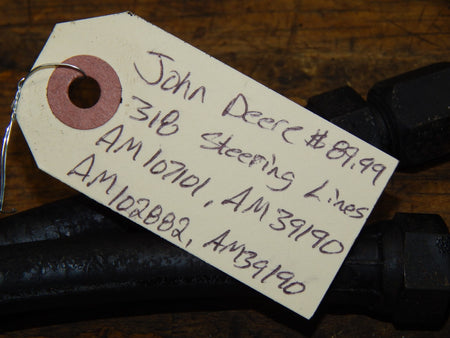 John Deere $89.99
318 Steering Lines
AM107101, AM39190
AM102882, AM39190